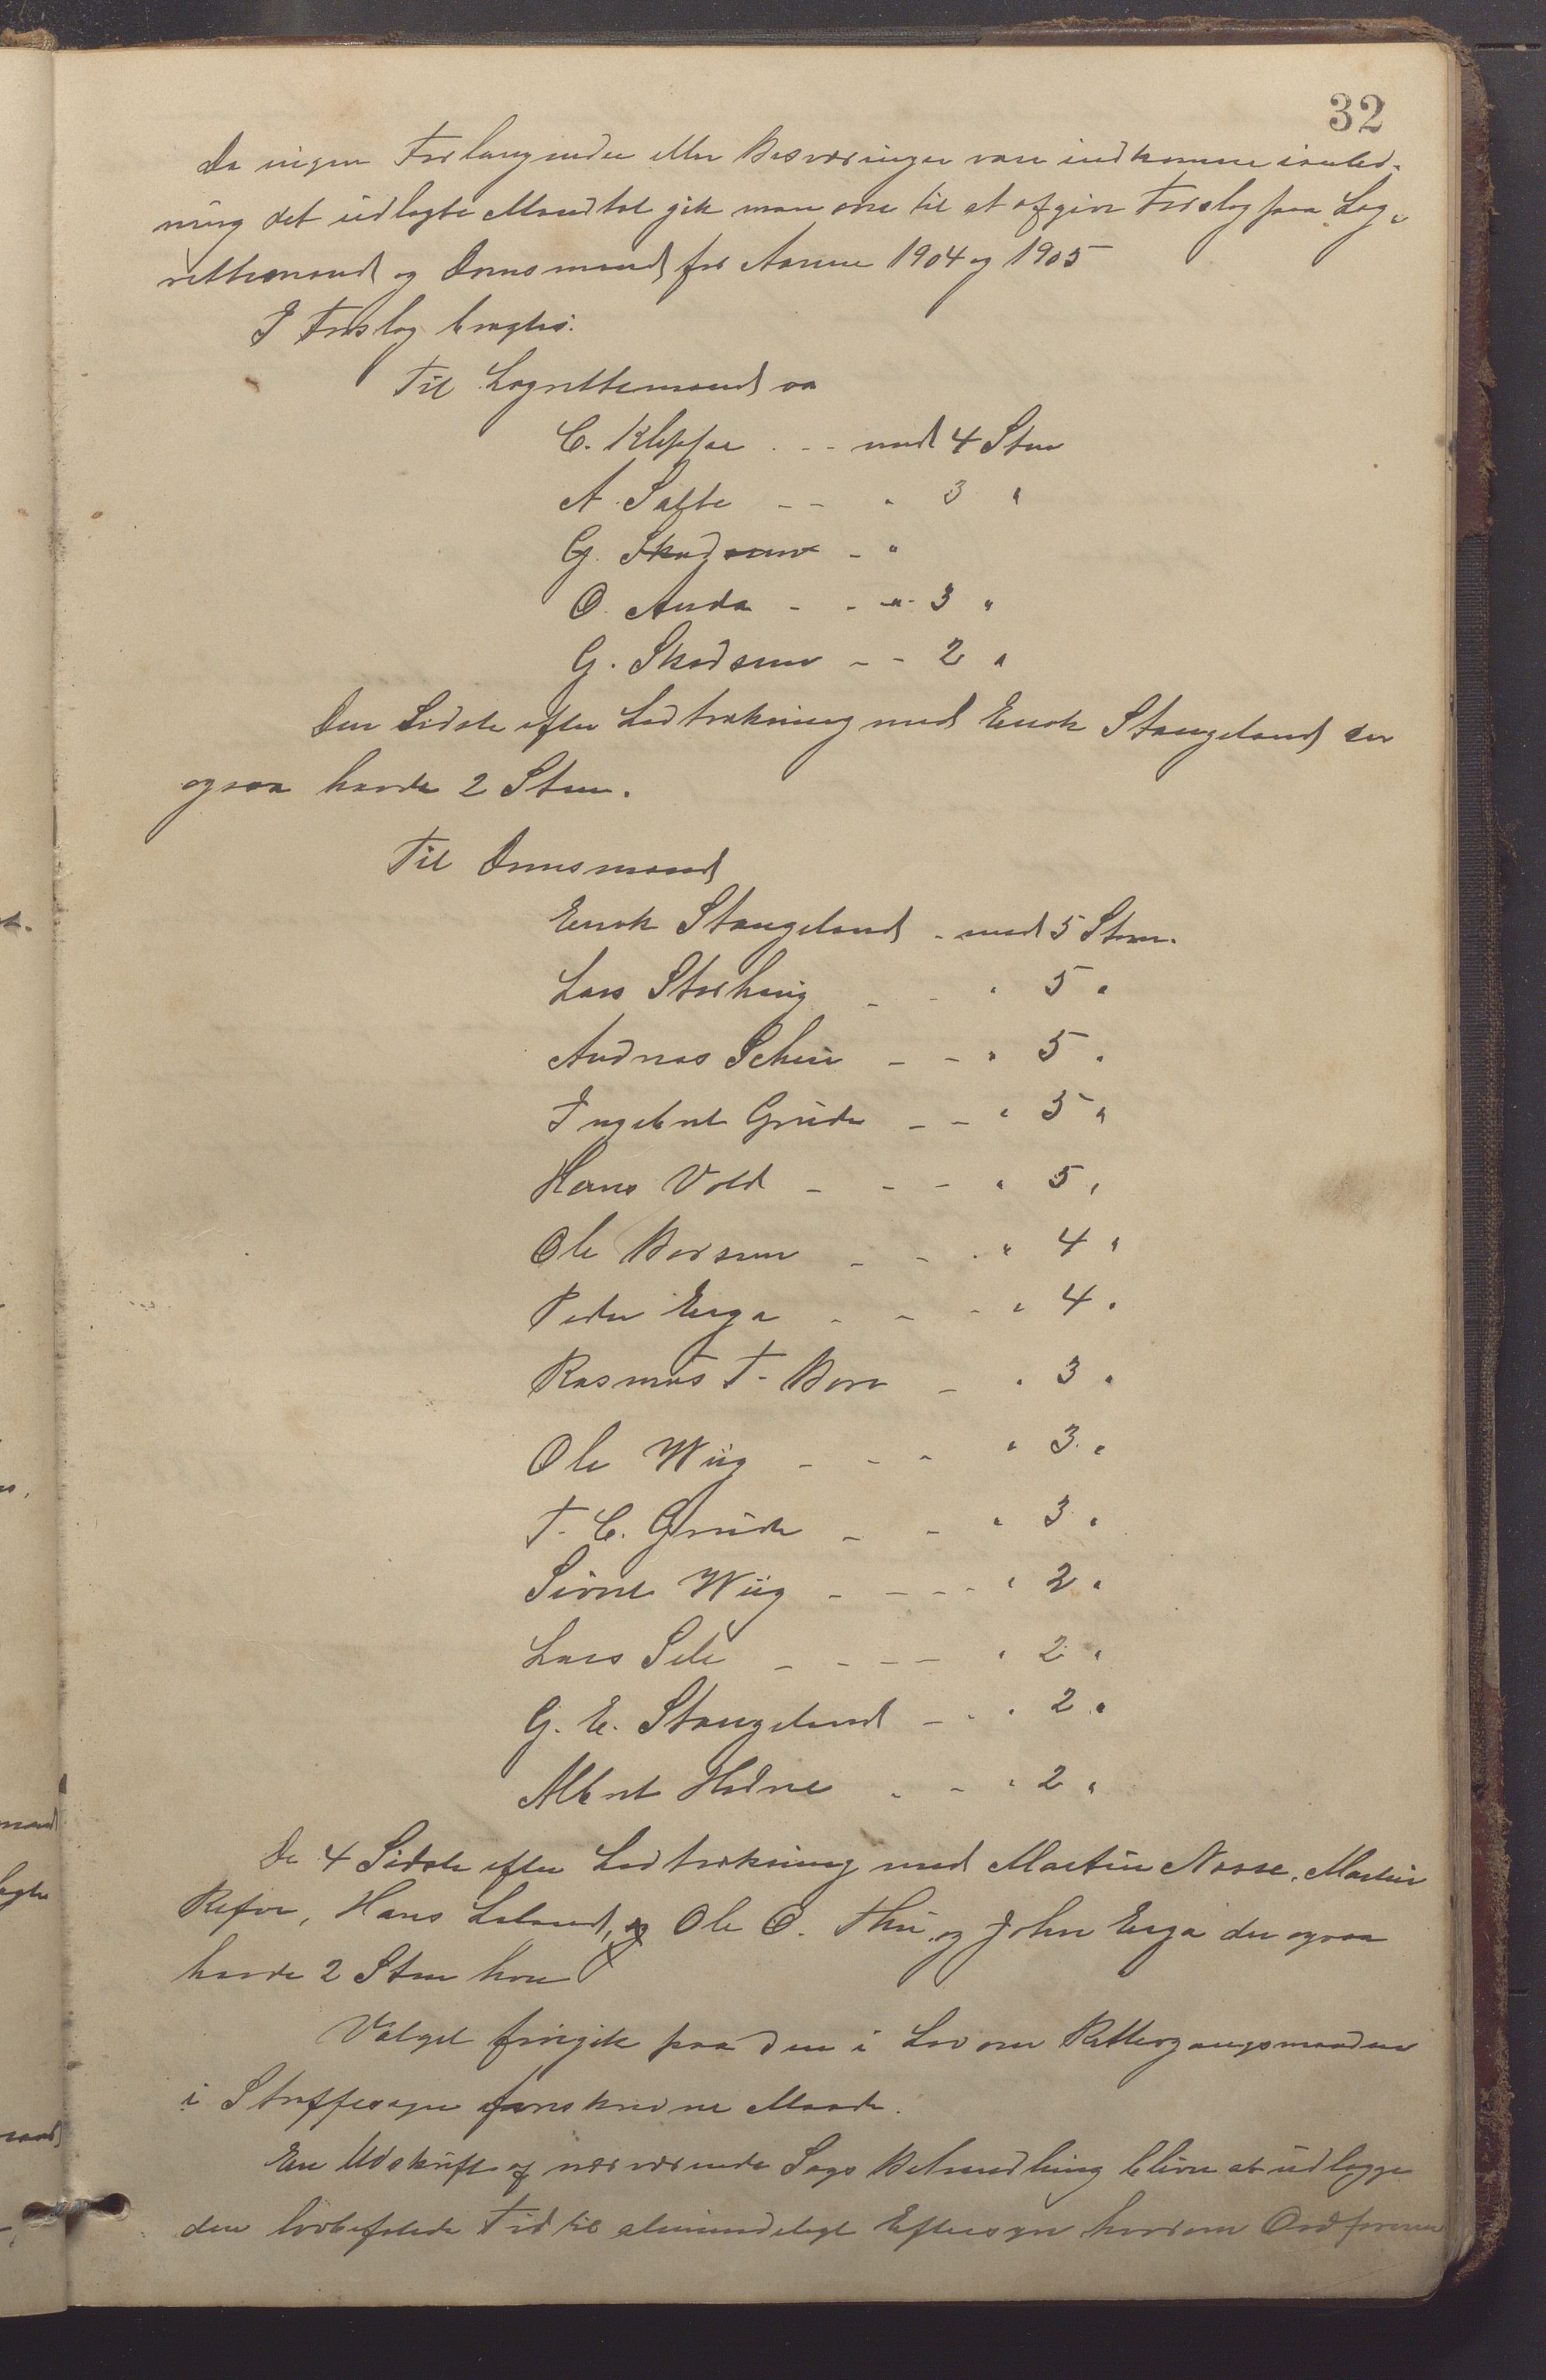 32
Da ingen Forlangender eller Besværinger vare indkomne ianled-
ning det udlagte Mandtal gik man over til at afgive Forslag paa Lag-
rettemænd og Domsmænd for Aarene 1904 og 1905
I Forslag bragtes:
Til Lagrettemænd
C. Kleppe . - - med 4 Stm
A. Salte - - " 3 "
G. Skadsem - "
O. Anda - - " 3 "
G. Skadsem - - 2 "
Den Sidste efter Lodtrækning med Enok Stangeland der
ogsaa havde 2 Stm.
Til Domsmænd
Enok Stangeland - med 5 Stm.
Lars Storhaug - - " 5 "
Andreas Scheie - - " 5 "
Ingebret Grude - - " 5 "
Hans Vold - - - " 5 "
Ole Borsum - - - " 4 "
Peder Erga - - - " 4 "
Rasmus T. Bore - " 3 "
Ole Wiig - - - " 3 "
T. C. Grude - - " 3 "
Sivert Wiig - - - - " 2 "
Lars Sele - - - - " 2 "
G. E. Stangeland - - " 2 "
Albert Hodne - - " 2 "
De 4 Sidste efter Lodtrækning med Martin Nærse, Martin
Refve, Hans Laland, og Ole O. Thu og John Erga der ogsaa
havde 2 Stm hver
Valget foregik paa den i Lov om Rettergangsmaaden
i Straffesager foreskrevne Maade.
En Udskrift af nærværende Sags Behandling bliver at udlægge
den lovbefalede Tid til almindeligt Eftersyn hvorom Ordføreren